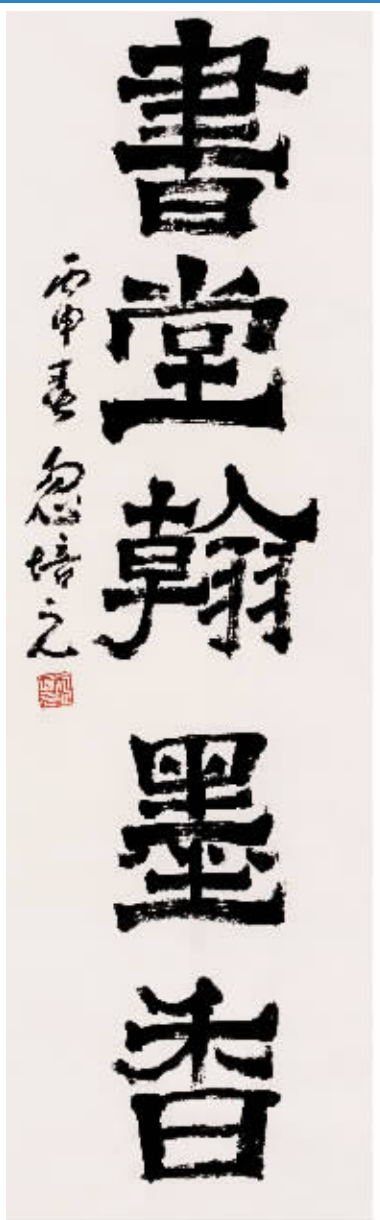 書堂翰墨香
丙申春 忽培元